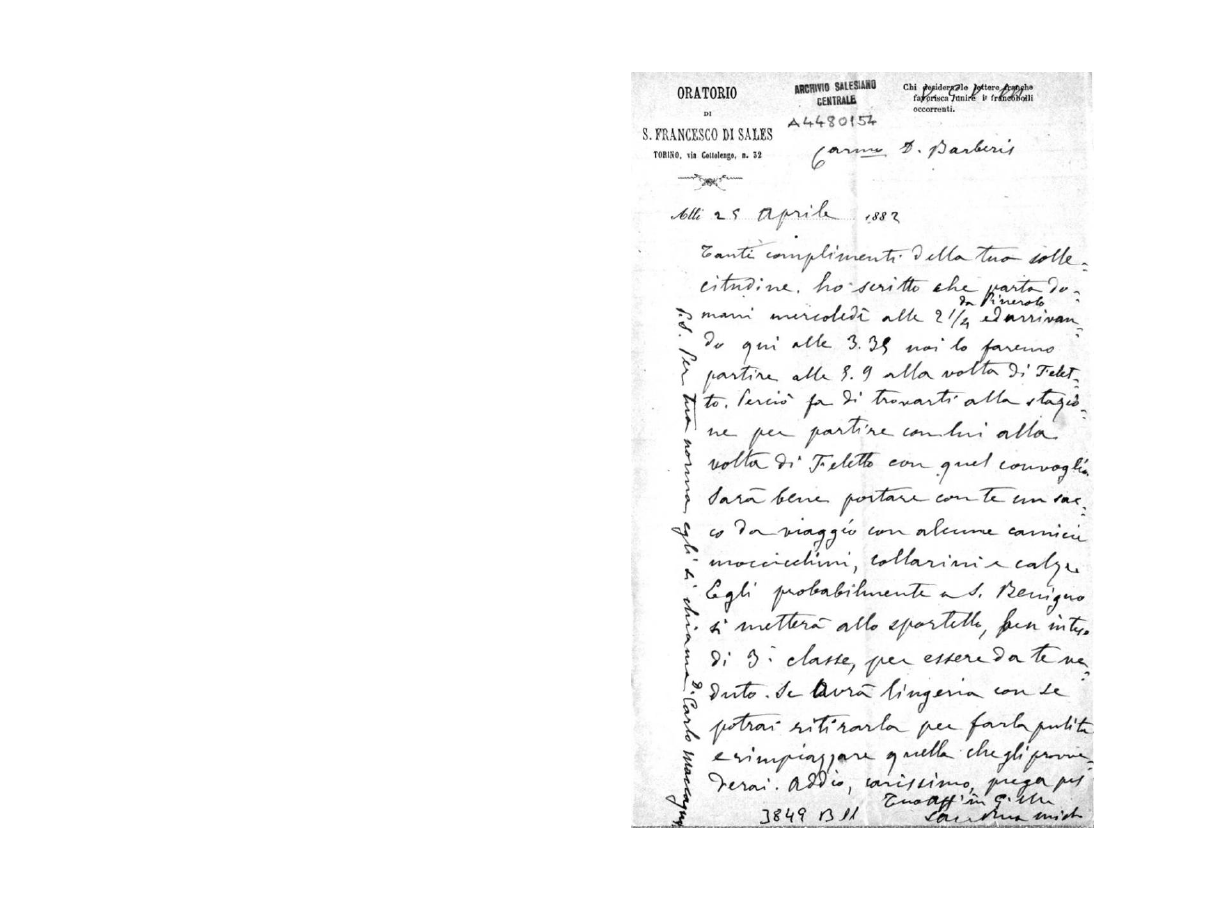 ORATORIO
DI
S. FRANCESCO DI SALES
TORINO, via Cottolengo, n. 32
ARCHIVIO SALESIANO
CENTRALE
A4480154
Chi desidera le lettere franche
favorisca unire i francobolli
occorrenti.
Carmo D. Barberis
Alli 25 Aprile 1882
Tanti complimenti della tua solle-
citudine. ho scritto che parta do-
da Pinerolo
mani mercoledì alle 2 1/4 ed arrivan-
do qui alle 3.35 noi lo faremo
partire alle 5.9 alla volta di Felet-
to. Perciò fa di trovarti alla stazio-
ne per partire con lui alla
volta di Feletto con quel convoglio
Sarà bene portare con te un sac-
co da viaggio con alcune camicie
moccichini, collarini e calze
Egli probabilmente a S. Benigno
si metterà allo sportello, ben inteso
di 3a classe, per essere da te ve-
duto. Se avrà lingeria con se
potrai ritirarla per farla pulita
e rimpiazzare quella che gli provve-
derai. Addio, carissimo, prega pel
Tuo aff in G.
3849 B
P.S. Per tua norma egli si chiama D. Carlo